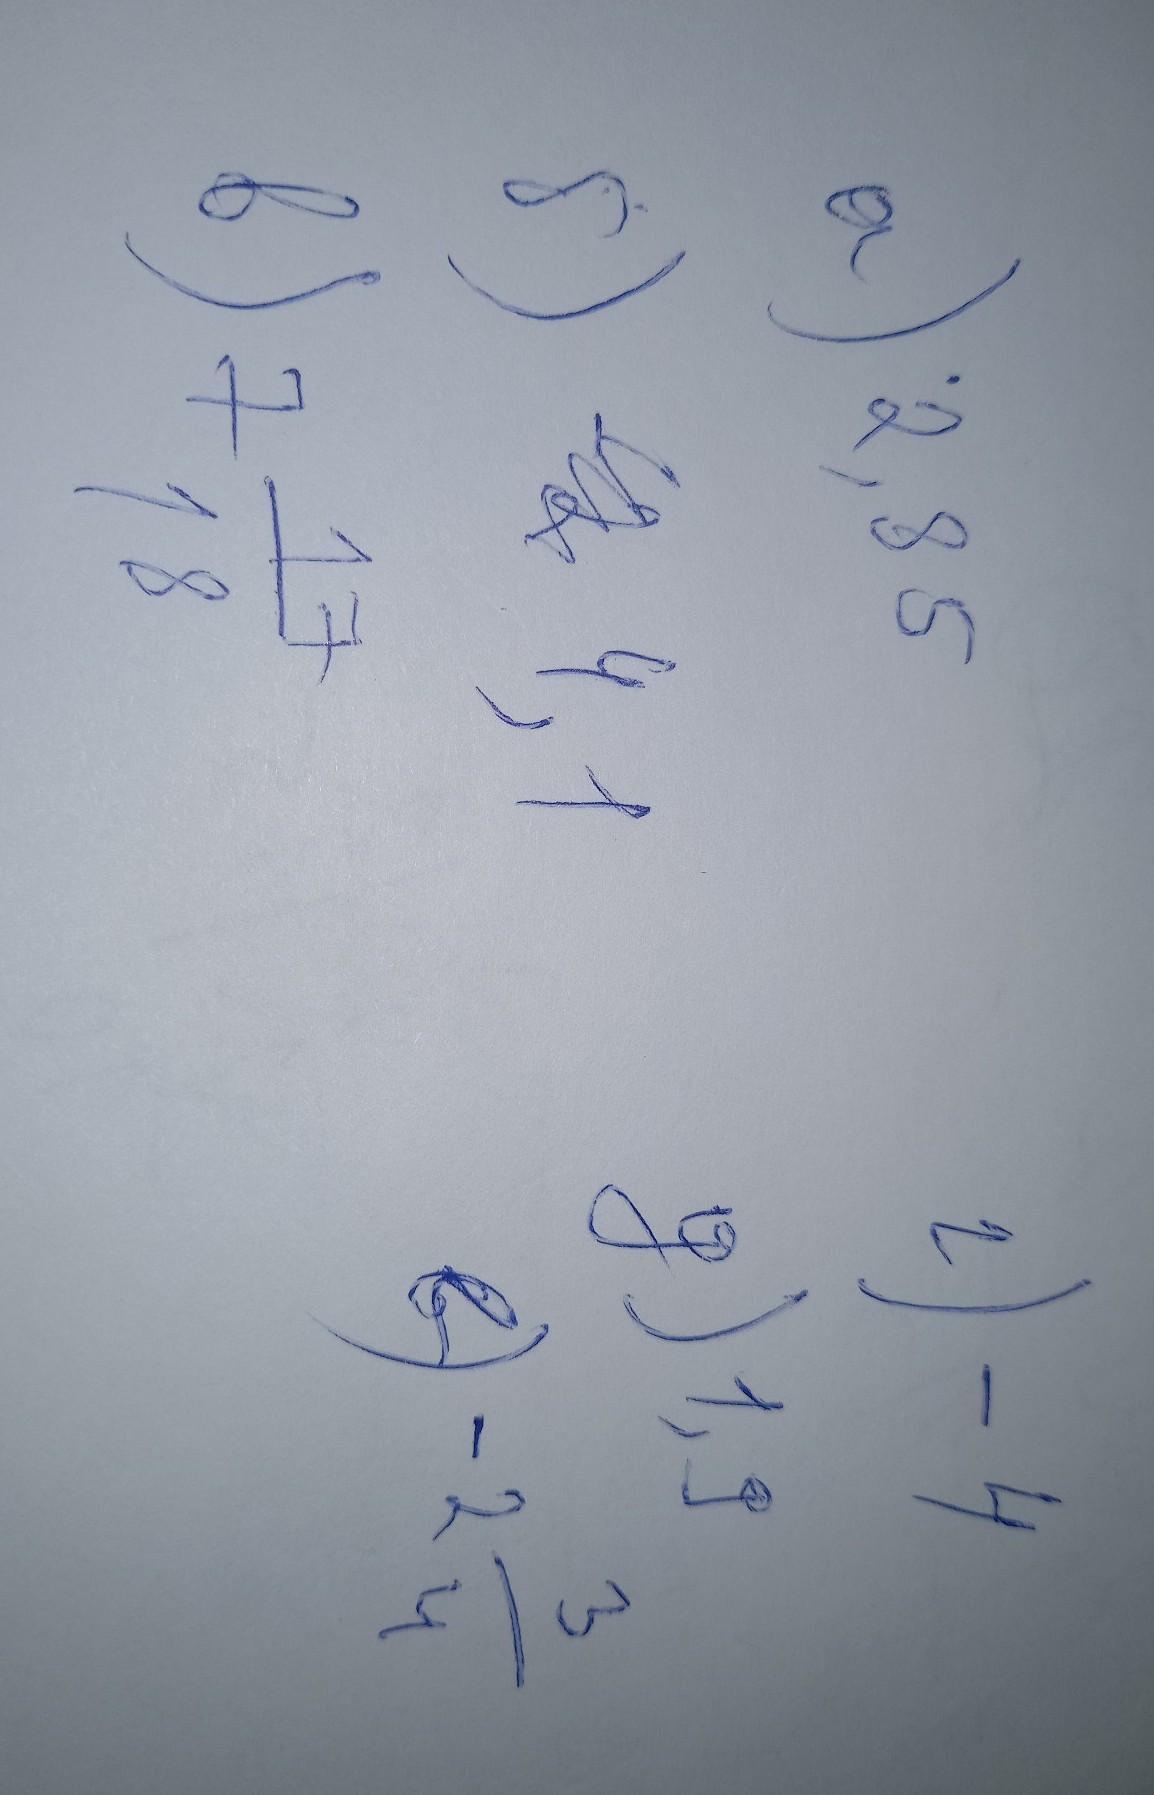 а) 2,85
б) 4,1
в) 7 17/18
г) -4
д) 1,9
е) -2 3/4